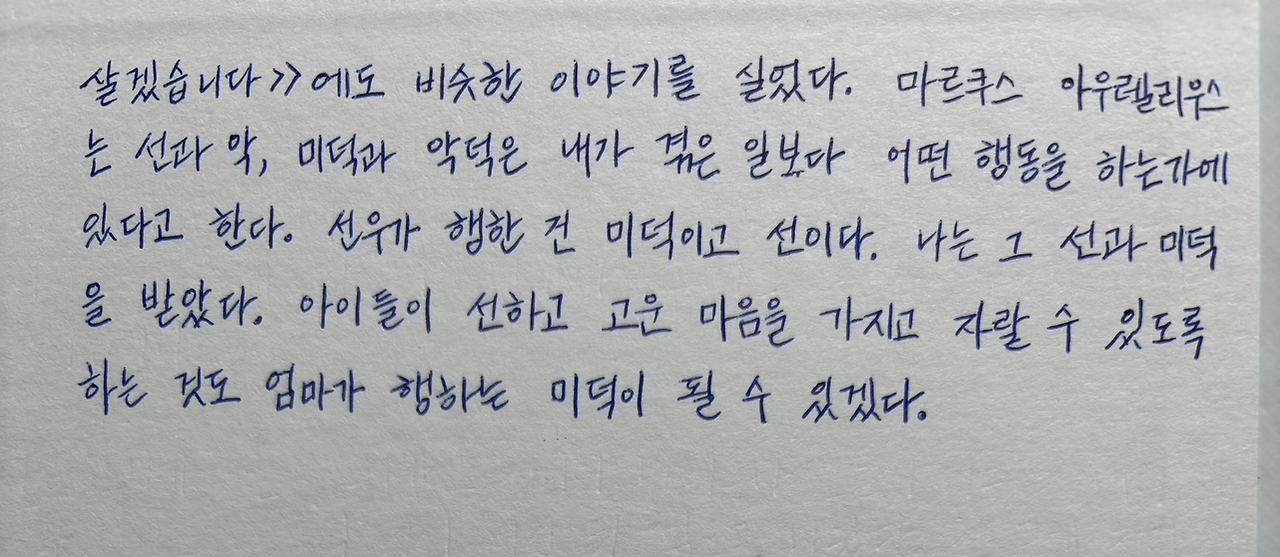 살겠습니다>>에도 비슷한 이야기를 실었다. 마르쿠스 아우렐리우스
는 선과 악, 미덕과 악덕은 내가 겪은 일보다 어떤 행동을 하는가에
있다고 한다. 선우가 행한 건 미덕이고 선이다. 나는 그 선과 미덕
을 받았다. 아이들이 선하고 고운 마음을 가지고 자랄 수 있도록
하는 것도 엄마가 행하는 미덕이 될 수 있겠다.